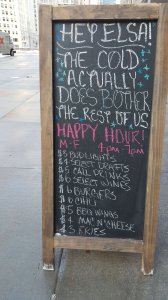 HEY ELSA!
THE COLD
ACTUALLY
DOES BOTHER
THE REST OF US
HAPPY HOUR!
M-F 4pm-7pm
$3 BUD LIGHTS
$4 SELECT DRAFTS
$5 CALL DRINKS
$6 SELECT WINES
$6 BURGERS
$6 CHILI
$5 BBQ WINGS
$4 MAC N' CHEESE
$3 FRIES